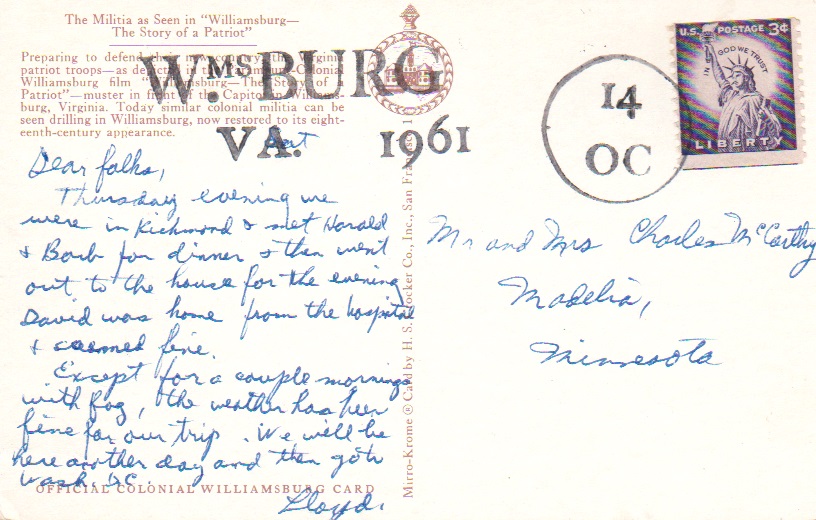 The Militia as Seen in "Williamsburg—
The Story of a Patriot"
Preparing to defend their new country, the Virginia
patriot troops—as depicted in the Colonial
Williamsburg film "Williamsburg—The Story of a
Patriot"—muster in front of the Capitol in Williams-
burg, Virginia. Today similar colonial militia can be
seen drilling in Williamsburg, now restored to its eight-
eenth-century appearance.
WMS BURG
VA. 1961
14
OC
U.S. POSTAGE 3¢
IN GOD WE TRUST
LIBERTY
Sat
Dear folks,
Thursday evening we
were in Richmond & met Harold
& Barb for dinner & then went
out to the house for the evening
David was home from the hospital
& seemed fine.
Except for a couple mornings
with fog, the weather has been
fine for our trip. We will be
here another day and then go to
Wash. D.C.
Lloyd.
OFFICIAL COLONIAL WILLIAMSBURG CARD
Mirro-Krome ® Card by H. S. Crocker Co., Inc., San Francisco 1
Mr and Mrs Charles McCarthy
Madelia,
Minnesota